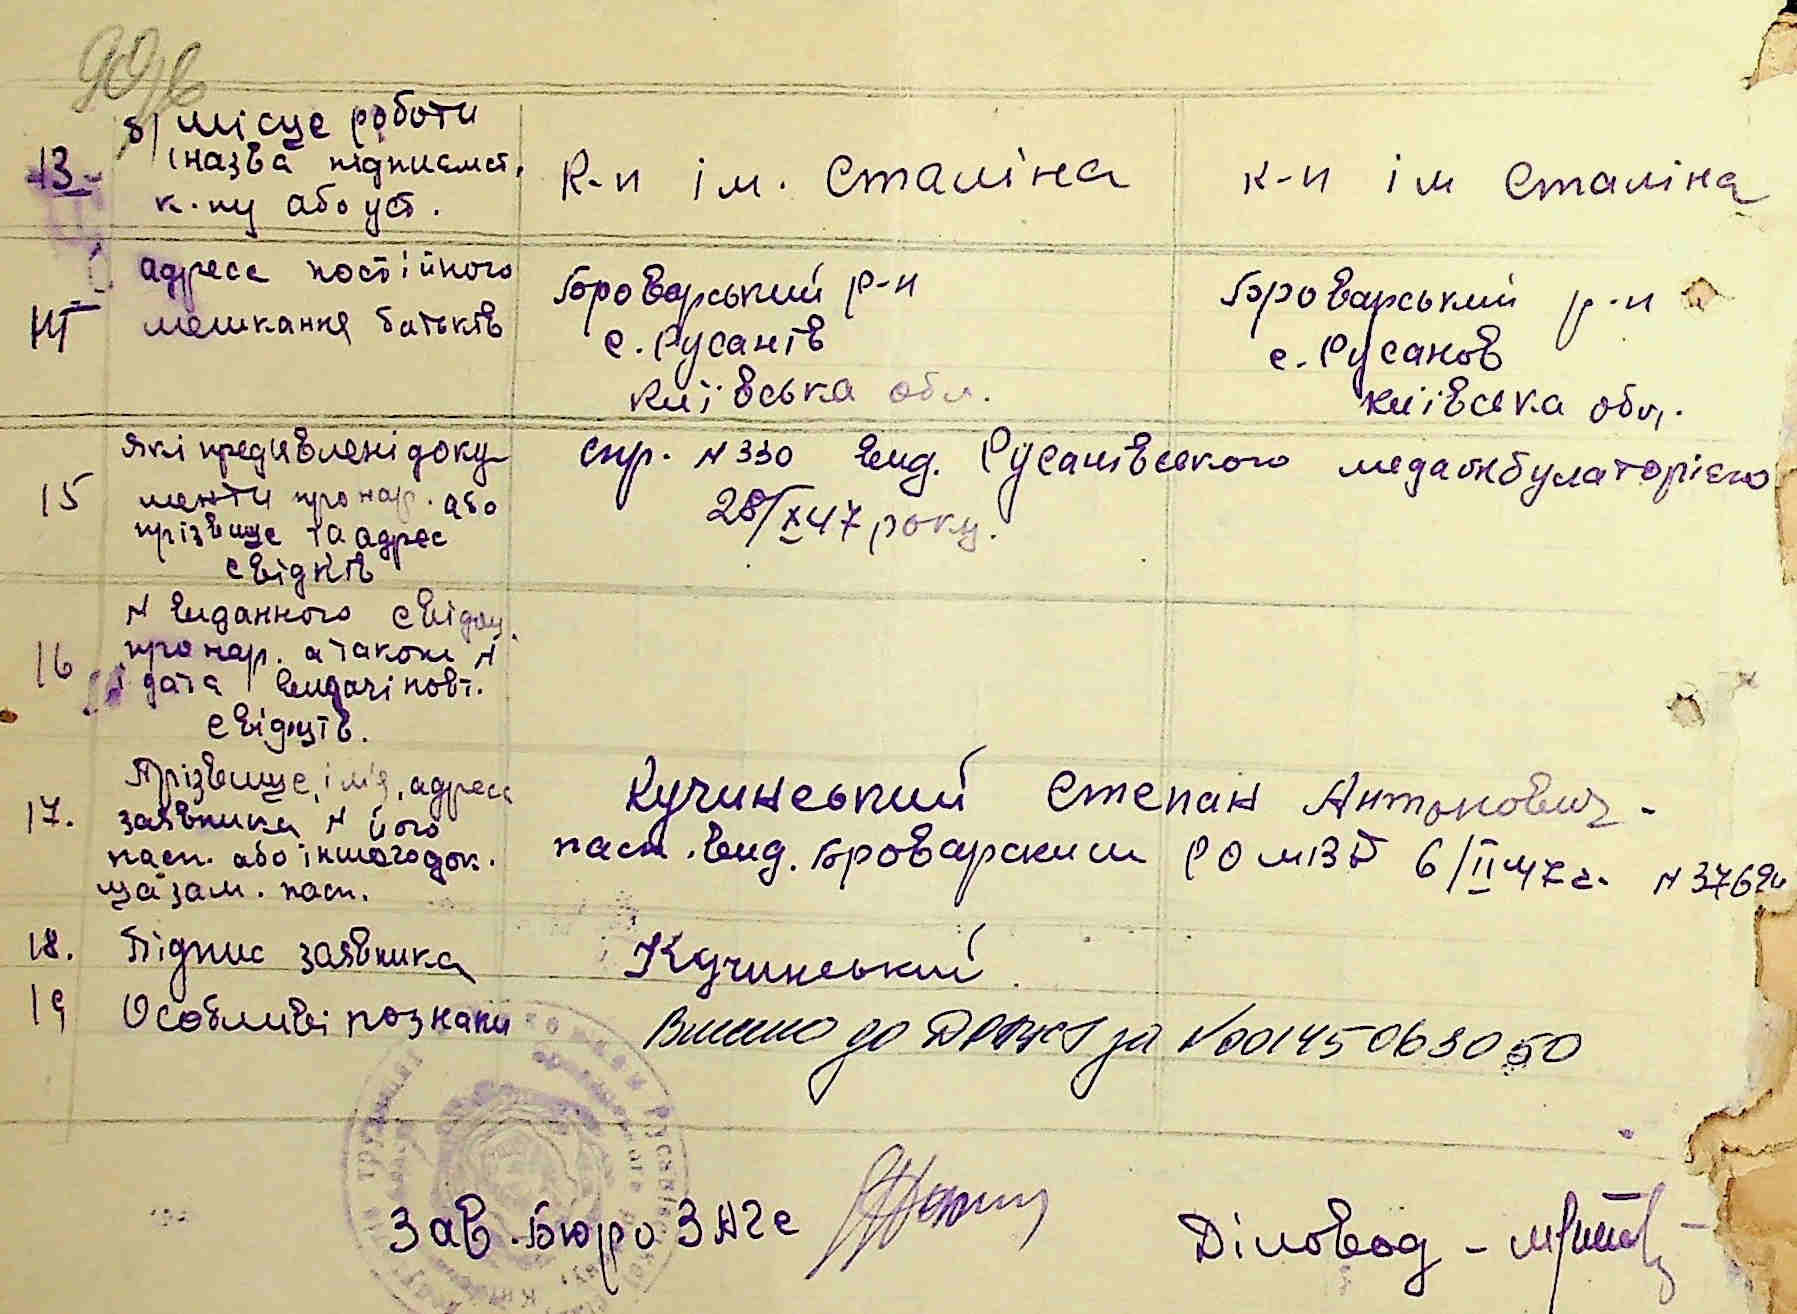 б) місце роботи
13. (назва підприємст.
к-пу або уст.
к-п ім. Сталіна
к-п ім Сталіна
адреса постійного
14 мешкання батьків
Броварський р-н
с. Русанів
Київська обл.
Броварський р-н
с. Русанов
Київська обл.
Які предявлені доку
15 менти про нар. або
прізвище та адрес
свідків
спр. N 330 вид. Русанівського медамбулаторією
28/X 47 року.
N виданного свідоц.
16 про нар. а також N
і дата видачі повт.
свідоцтв.
Прізвище, ім'я, адреса
17. заявника, N його
пасп. або іншого док.
що зам. пасп.
Кучинський Степан Антонович -
пасп. вид. Броварским РО МВД 6/II 47 г. N
18. Підпис заявника
Кучинський
19 Особливі познаки
Внесено до за N 00145063050
Зав. Бюро ЗАГС
Діловод -